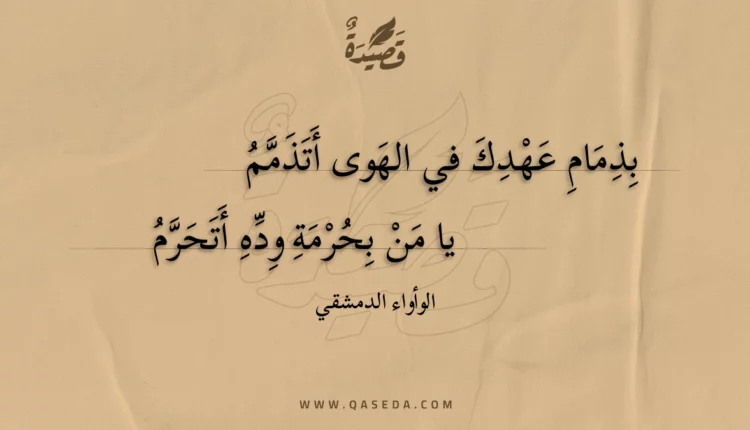 قَصِيْدَةٌ
بِذِمَامِ عَهْدِكَ في الهَوى أَتَذَمَّمُ
يا مَنْ بِحُرْمَةِ وِدِّهِ أَتَحَرَّمُ
الوأواء الدمشقي
WWW.QASEDA.COM